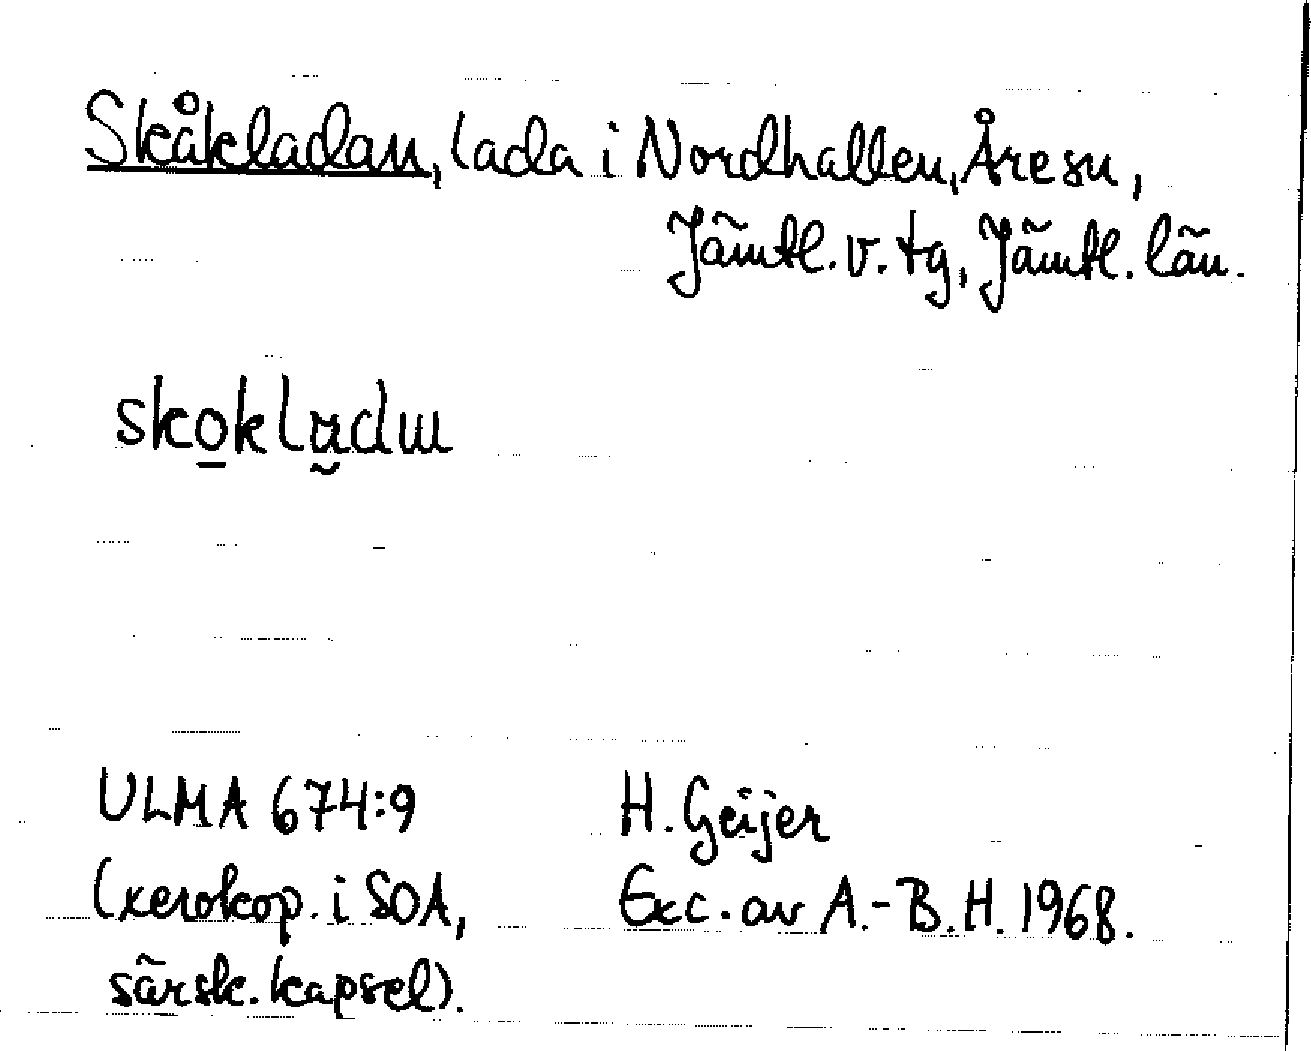 Skåkladan, lada i Nordhallen, Åre sn,
Jämtl. v. tg, Jämtl. län.
ULMA 674:9
(xerokop. i SOA,
särsk. kapsel).
H. Geijer
Exc. av A.-B.H. 1968.